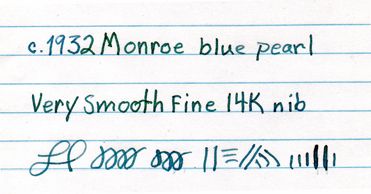 c.1932 Monroe blue pearl
Very Smooth Fine 14K nib